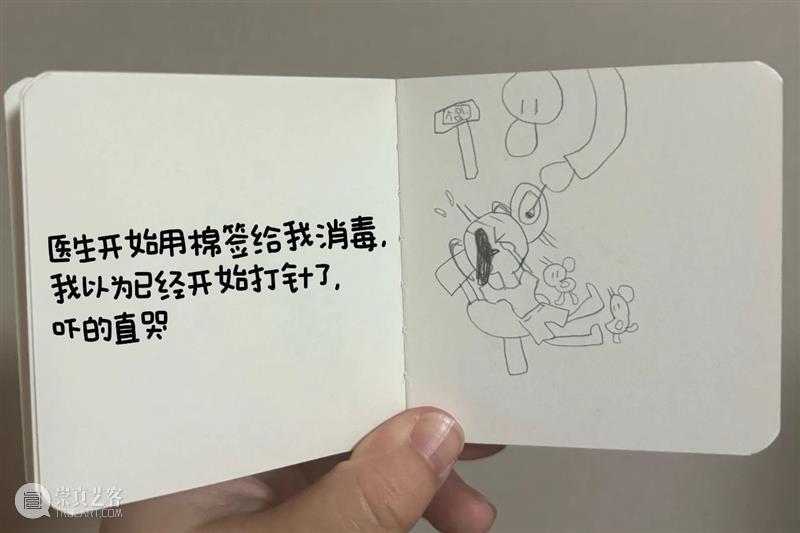 医生开始用棉签给我消毒,
我以为已经开始打针了,
吓的直哭
崇真艺客
TRUEART.COM